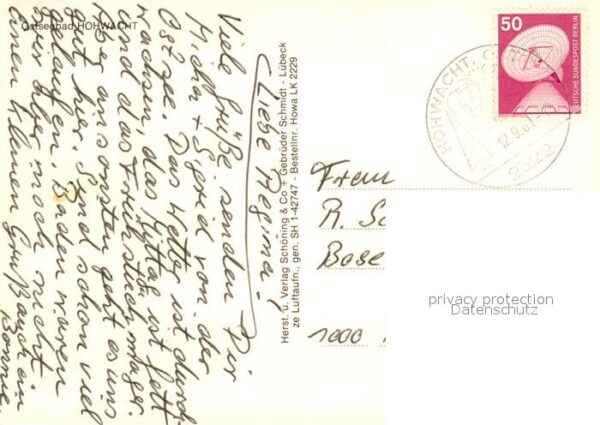 Ostseebad HOHWACHT
Liebe Regina!
Viele Grüße senden Dir
Micha + Sigrid von der
Ostsee. Das Wetter ist durch-
wachsen, das Mittag ist fett
und das Frühstück mager.
Aber ansonsten geht es uns
gut hier. Sind schon viel
gelaufen. Baden waren
wir aber noch nicht.
einen kleinen
Herst. u. Verlag Schöning & Co + Gebrüder Schmidt - Lübeck
ze Luftaufn., gen. SH 1-42747 - Bestellnr. Howa LK 2229
50
DEUTSCHE BUNDESPOST BERLIN
HOHWACHT,
12.9.
Frau
R. Sc
Base
1000
privacy protection
Datenschutz